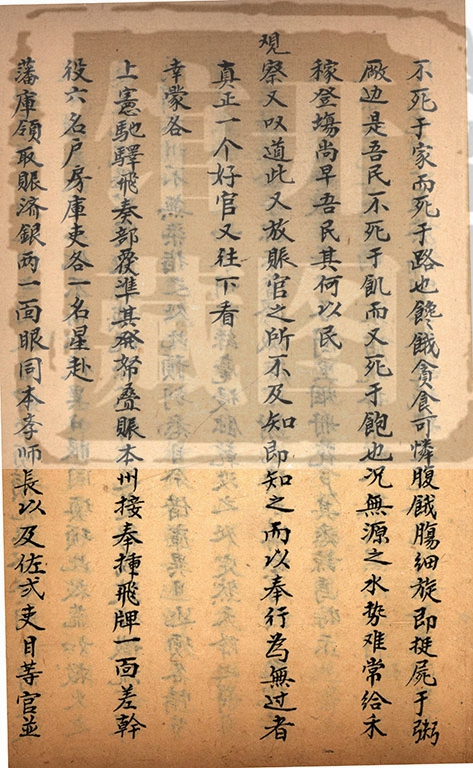 不死于家而死于路也饞餓貪食可憐腹餓腸細旋即挺屍于粥
厰边是吾民不死于飢而又死于飽也况無源之水势难常给禾
稼登塲尚早吾民其何以民
观察又以道此又放賑官之所不及知即知之而以奉行為無过者
真正一个好官又往下看
幸蒙各
上憲馳驛飛奏部覆准其發帑叠賑本州接奉捧飛牌一面差幹
役六名户房庫吏各一名星赴
藩庫領取賑济銀两一面眼同本孝师長以及佐弍吏目等官並